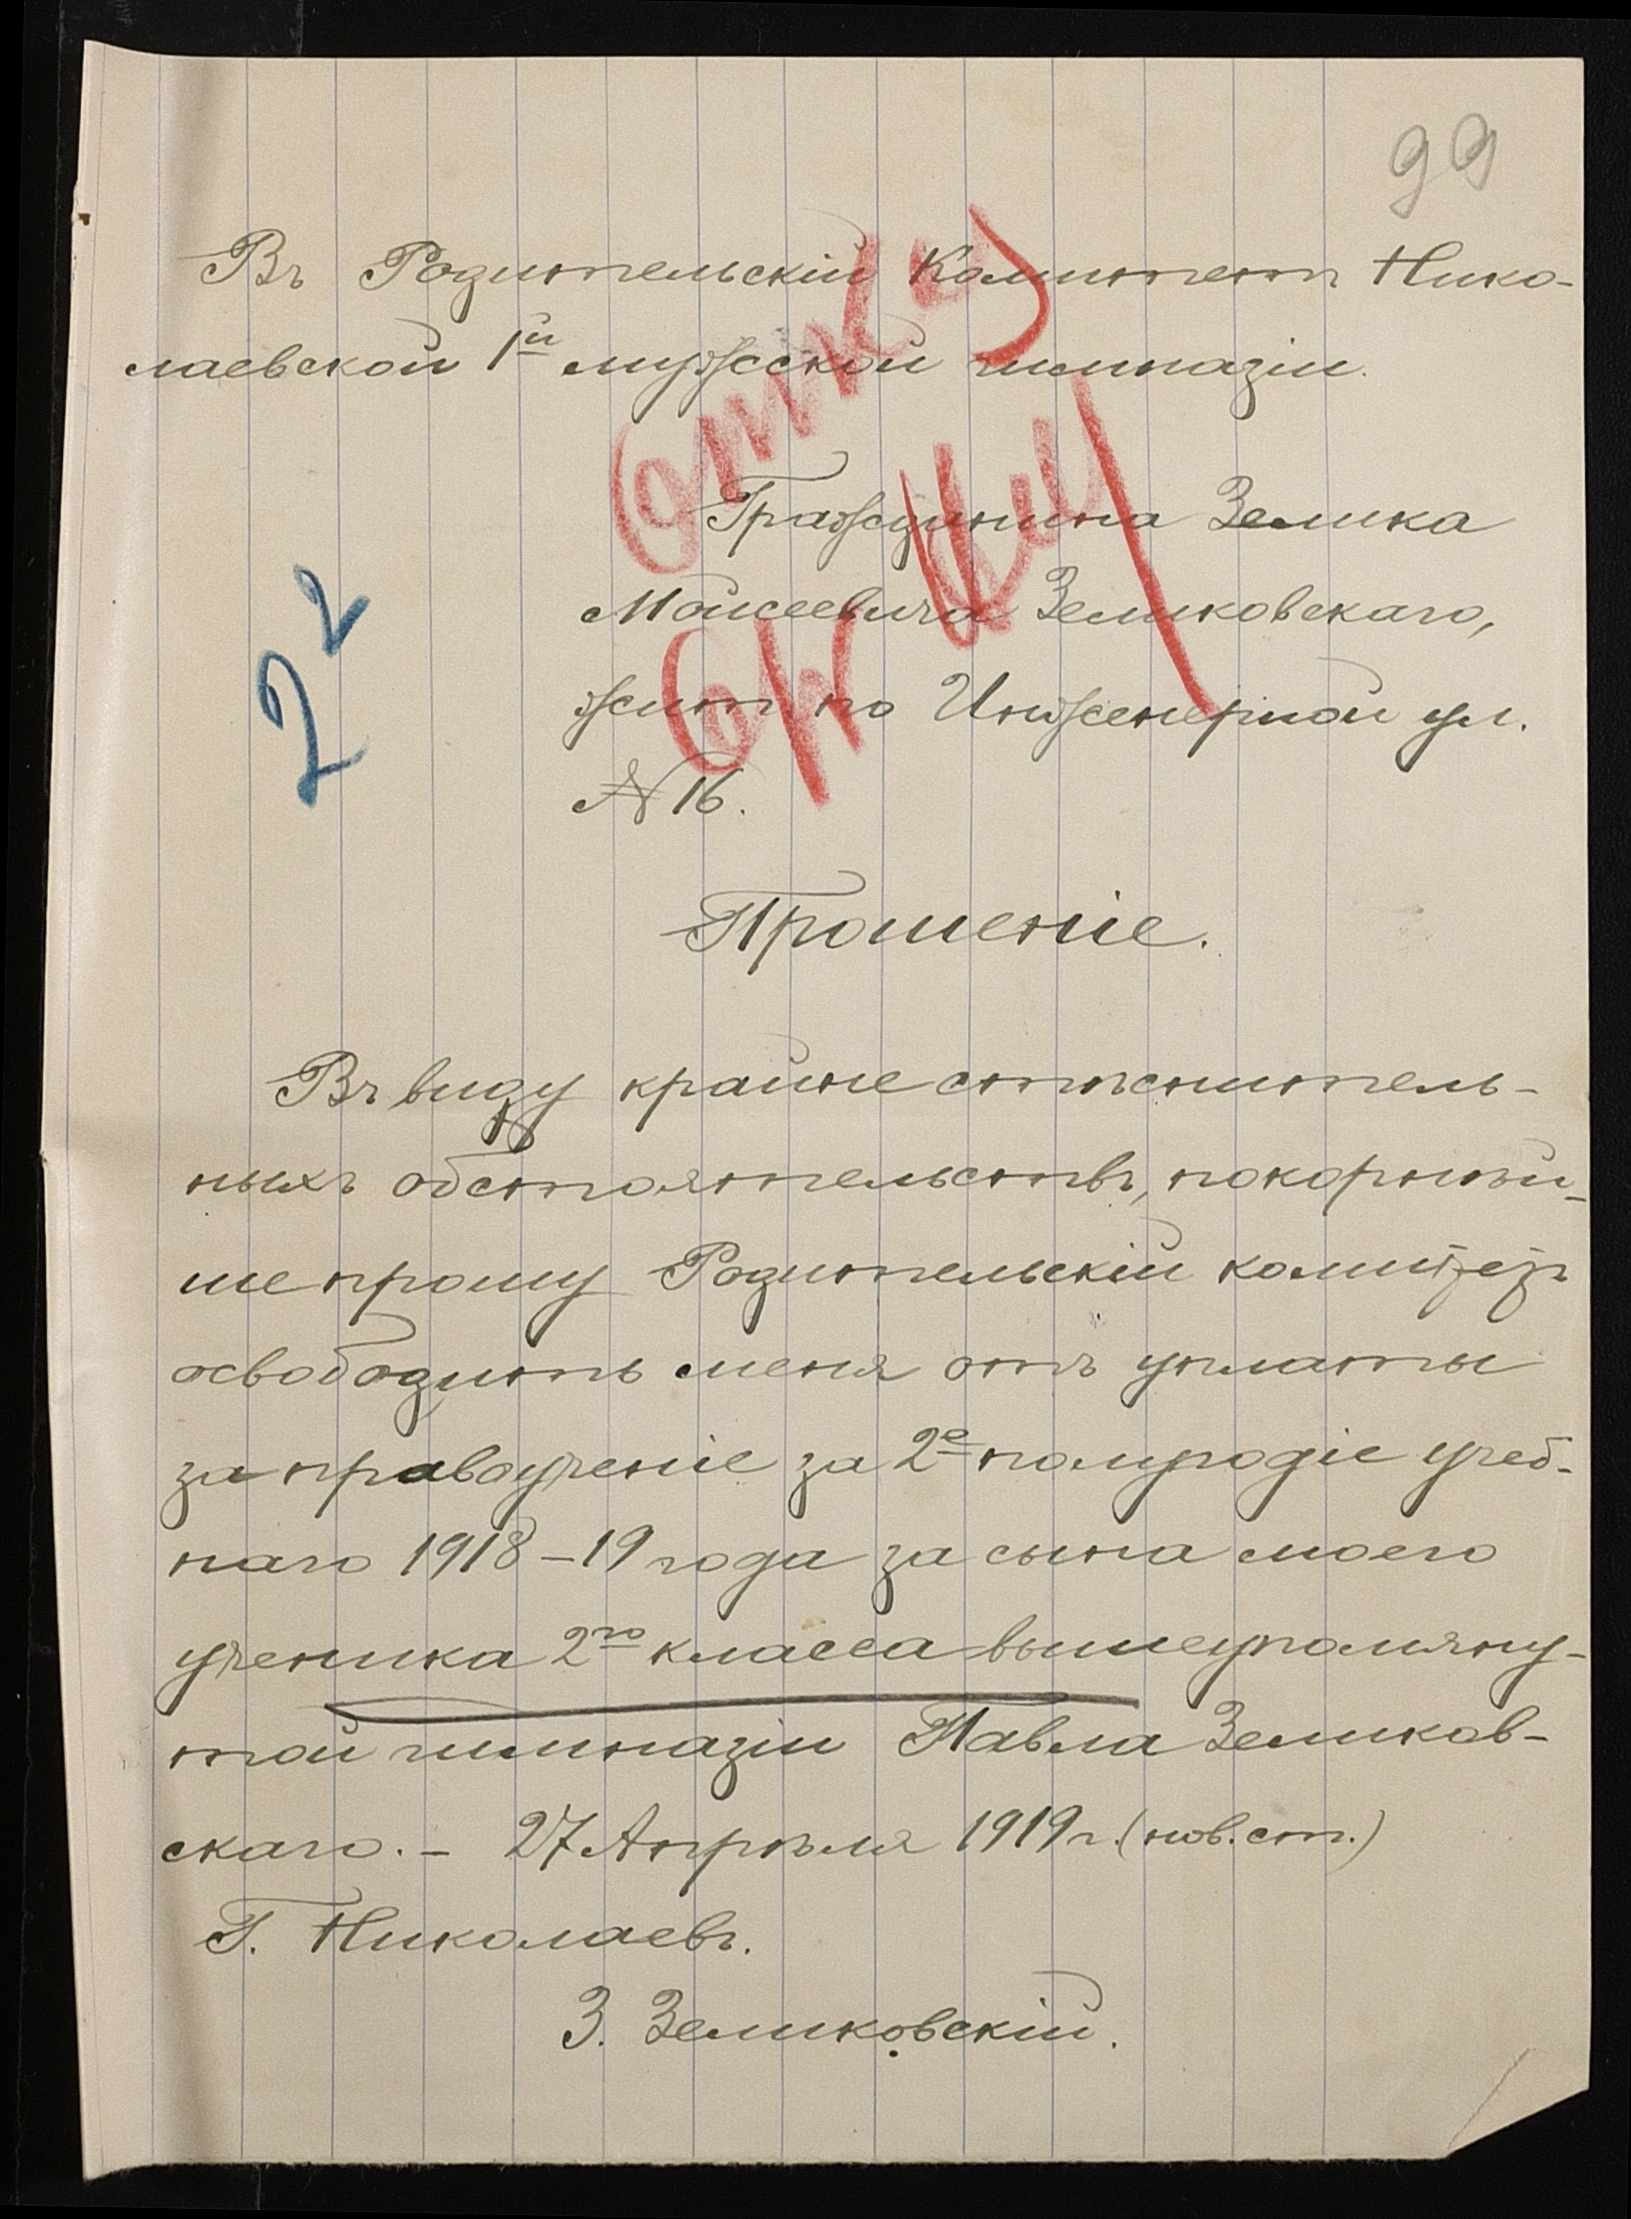 99
Въ Родительскій Комитетъ Нико-
лаевской 1й мужской гимназіи.
Гражданина Зелика
Моисеевича Зеликовскаго,
жит. по Инженерной ул.
№ 16.
22
Прошеніе.
Въ виду крайне стѣснитель-
ныхъ обстоятельствъ, покорнѣй-
ше прошу Родительскій комитетъ
освободить меня отъ уплаты
за правоученіе за 2е полугодіе учеб-
наго 1918-19 года за сына моего
ученика 2го класса вышеупомяну-
той гимназіи Павла Зеликов-
скаго. - 27 Апрѣля 1919 г. (нов. ст.)
Г. Николаевъ.
З. Зеликовскій.